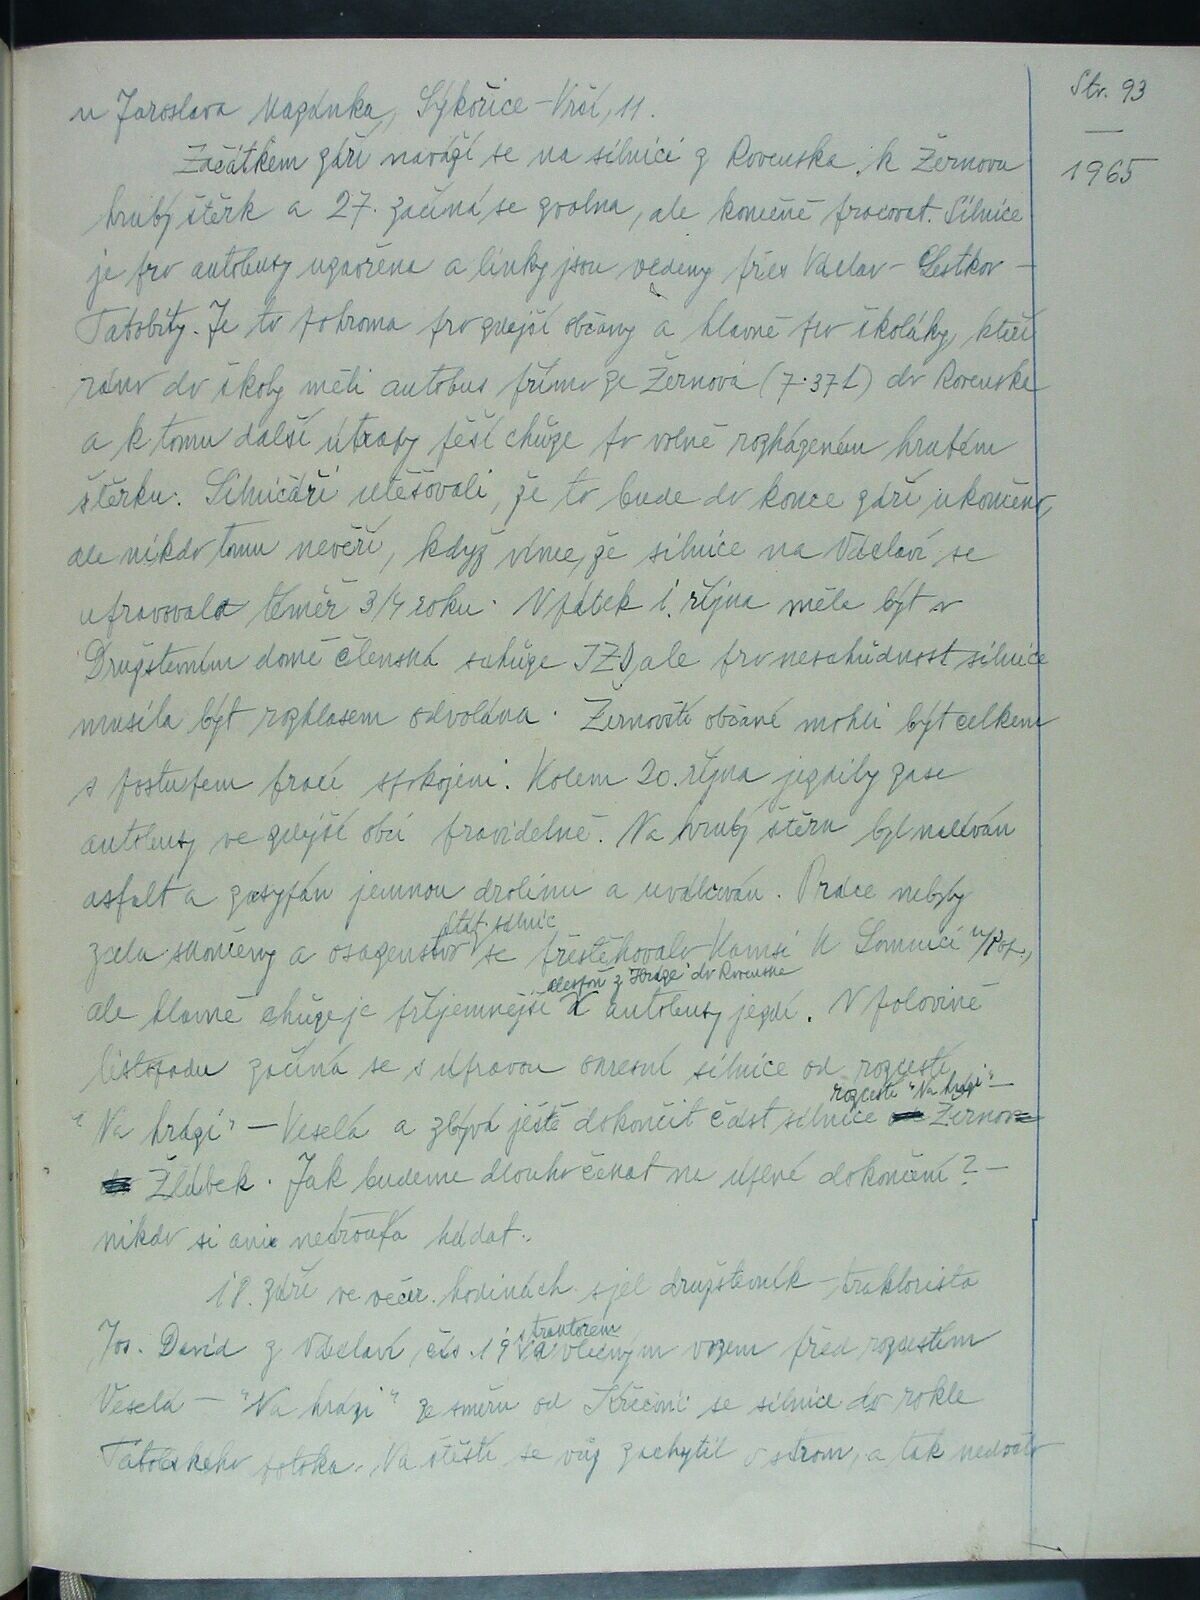 Str. 93
1965
u Jaroslava Magánka, Sýkořice - Vrší, 11.
Začátkem září naváží se na silnici z Rovenska k Žernovu
hrubý štěrk a 27. začíná se zvolna, ale konečně pracovat. Silnice
je pro autobusy uzavřena a linky jsou vedeny přes Václav - Lestkov -
Tatobity. Je to pohroma pro zdejší občany a hlavně pro školáky, kteří
ráno do školy měli autobus přímo ze Žernova (7.37 h) do Rovenska
a k tomu další útrapy pěší chůze po volně rozházeném hrubém
štěrku. Silničáři utěšovali, že to bude do konce září ukončeno,
ale nikdo tomu nevěří, když víme, že silnice na Václaví se
upravovala téměř 3/4 roku. V pátek 1. října měla být v
Družstevním domě členská schůze JZD, ale pro neschůdnost silnice
musila být rozhlasem odvolána. Žernovští občané mohli být celkem
s postupem prací spokojeni. Kolem 20. října jezdily zase
autobusy ve zdejší obci pravidelně. Na hrubý štěrk byl naléván
asfalt a zasypán jemnou drolinu a uválcován. Práce nebyly
Stát. silnic
zcela skončeny a osazenstvo se přestěhovalo kamsi k Lomnici n/Pop.,
alespoň z "Hráze" do Rovenska
ale hlavně chůze je příjemnější a autobusy jezdí. V polovině
listopadu začíná se s úpravou okresní silnice od rozcestí
rozcestí "Na hrázi" -
"Na hrázi" - Veselá a zbývá ještě dokončit část silnice Žernov
Žlábek. Jak budeme dlouho čekat na úplné dokončení? -
nikdo si ani netroufá hádat.
18. září ve večer. hodinách sjel družstevník - traktorista
traktorem
Jos. David z Václaví, čís. 19 s vlečným vozem před rozcestím
Veselá - "Na hrázi" ze směru od Křečovic se silnice do rokle
Tatobského potoka. Na štěstí se vůz zachytil o strom, a tak nedošlo